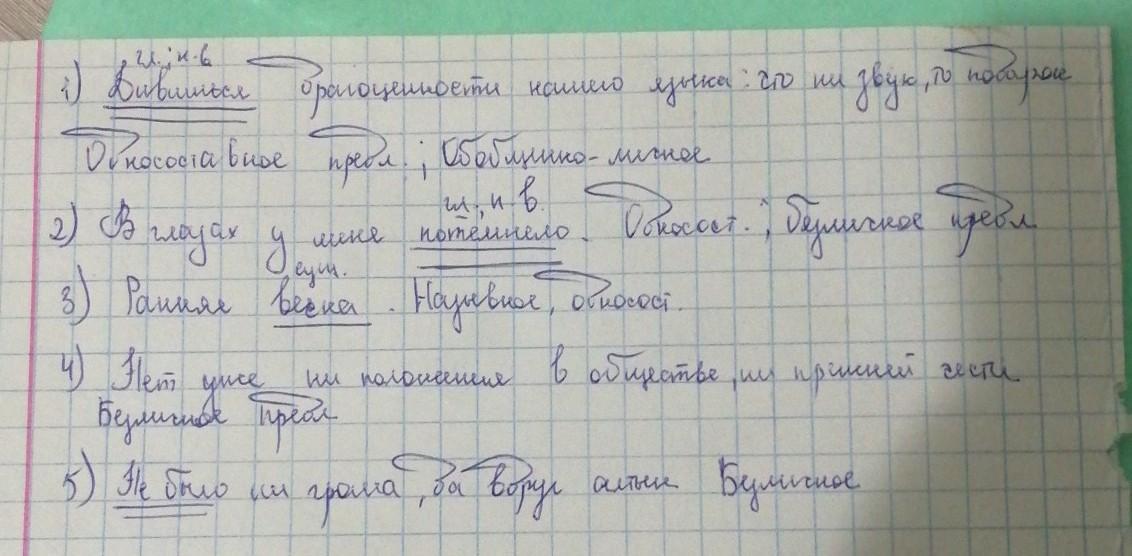 гл., н. в
1) Дивишься драгоценности нашего языка: что ни звук, то подарок
Односоставное предл.; Обобщённо-личное
гл., н. в.
2) В глазах у меня потемнело. Односост.; Безличное предл
сущ.
3) Ранняя весна. Назывное, односост.
4) Нет уже ни положения в обществе, ни прежней чести
Безличное предл
5) Не было ни гроша, да вдруг алтын Безличное